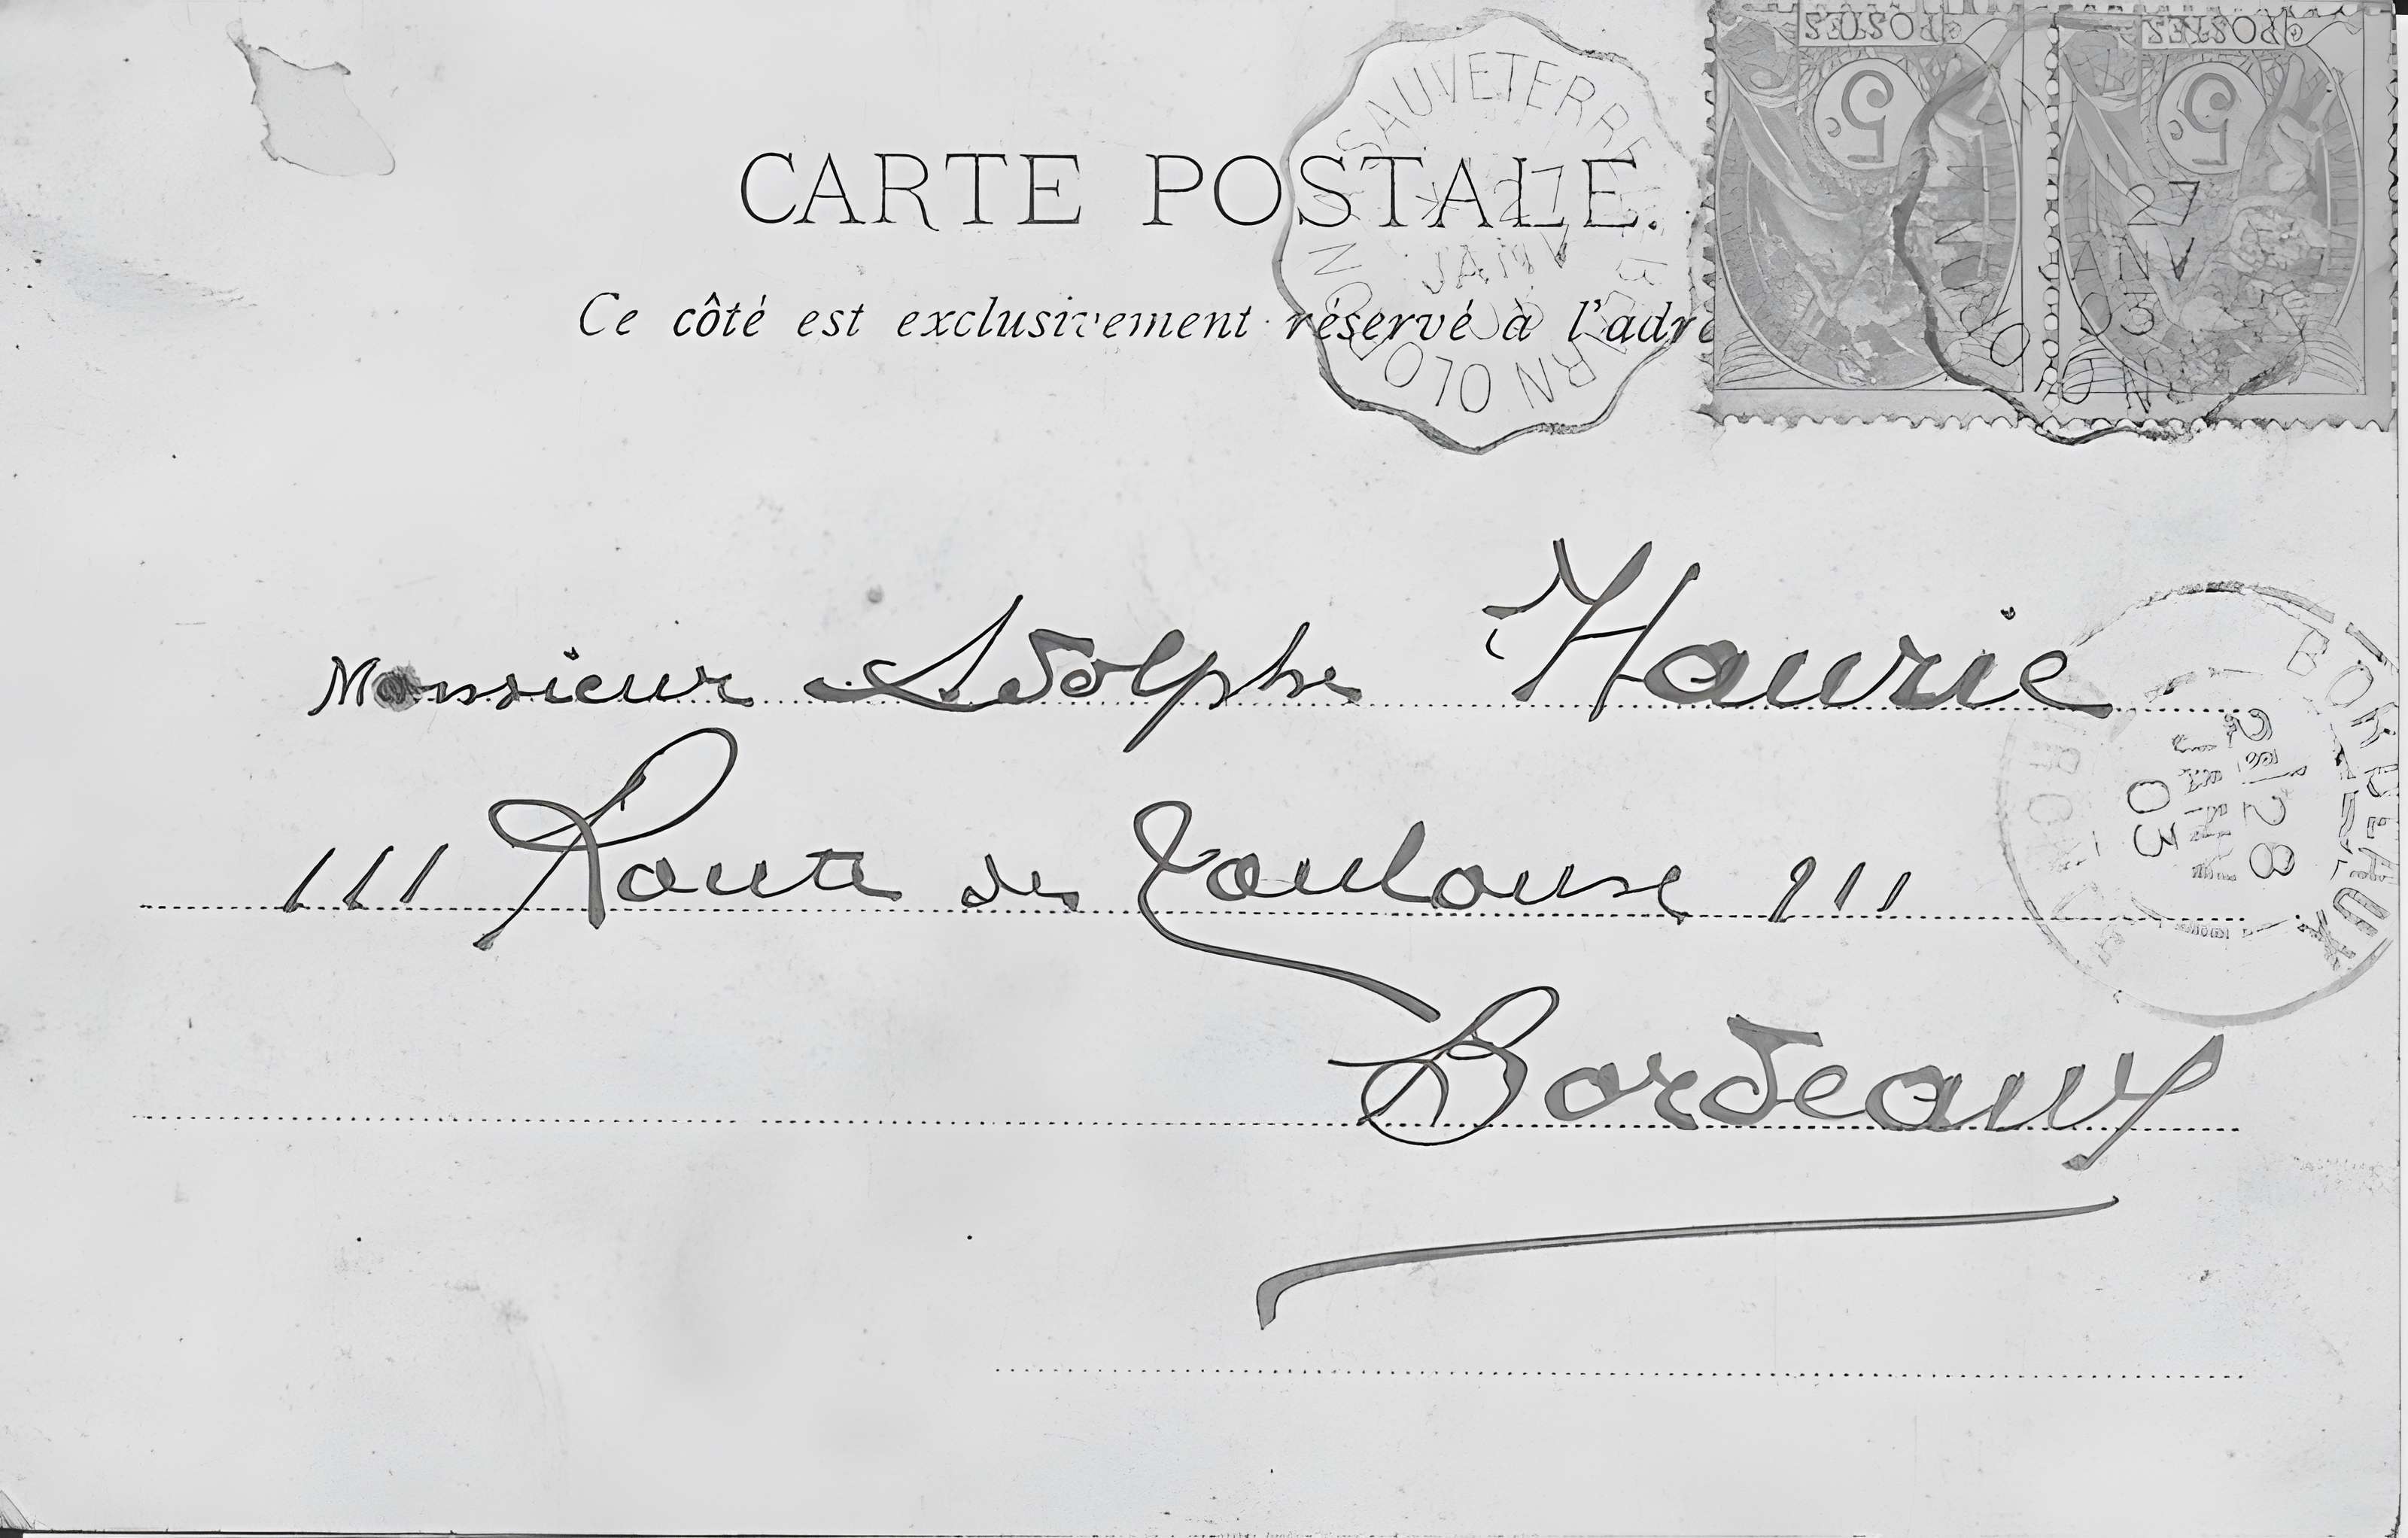 CARTE POSTALE.
Ce côté est exclusivement réservé à l'adre
SAUVETERRE
27
JANV
03
BEARN
OLORON
POSTES
5c
POSTES
5c
27
JANV
03
OLORON
Monsieur Adolphe Haurie
111 Route de Toulouse 111
Bordeaux
BORDEAUX
28
03
GIRONDE